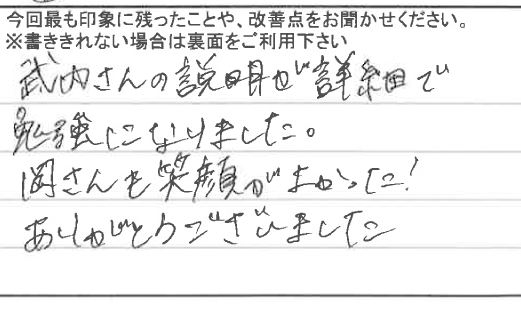 今回最も印象に残ったことや、改善点をお聞かせください。
※書ききれない場合は裏面をご利用下さい
武内さんの説明が詳細で
勉強になりました。
岡さんも笑顔がよかった!
ありがとうございました